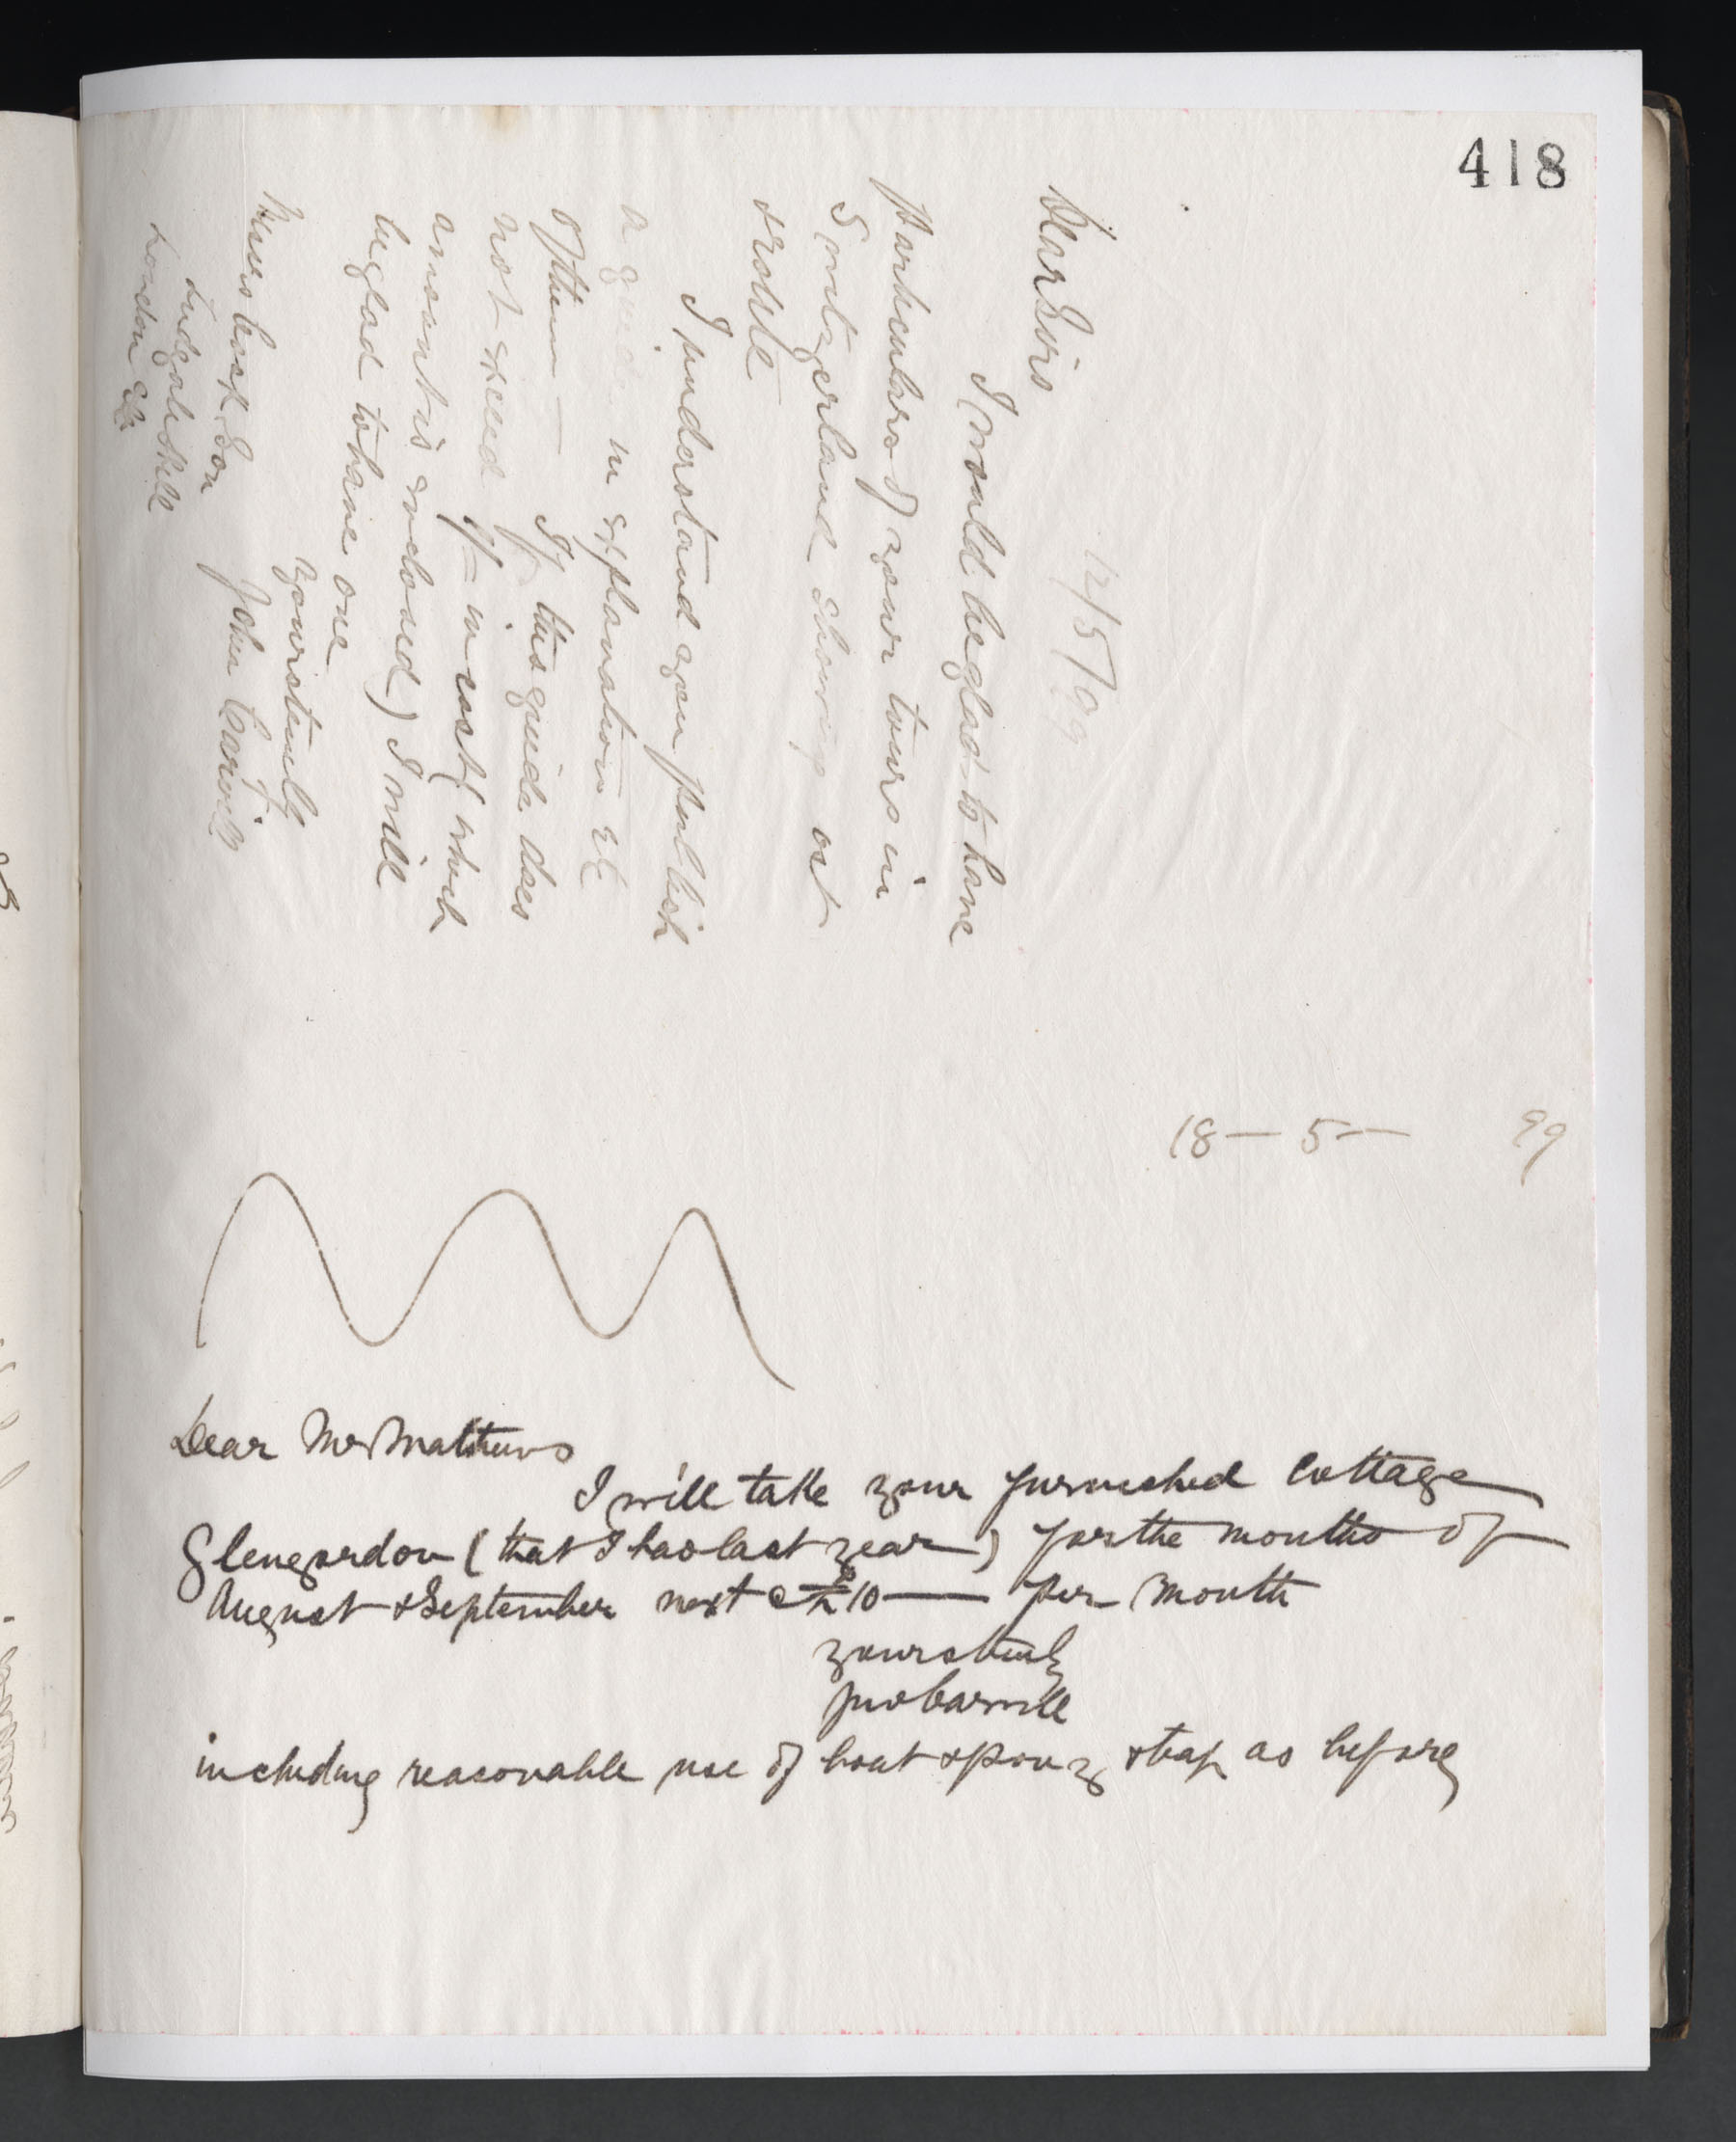 418
12/5/99
Dear Sirs
I would be glad to have
particulars of your tours in
Switzerland showing cost
& route
I understand you publish
a guide in explanation etc
of them — If this guide does
not exceed
1/- in cost (which
amount is enclosed) I will
be glad to have one
yours truly
John Carvill
Messrs Cook & Son
Ludgate Hill
London EC
18 — 5 — 99
Dear Mr Matthews
I will take your furnished Cottage
Glengordon (that I had last year) for the months of
August & September next @ £10 — per month
yours truly
Jno Carvill
including reasonable use of boat & pony & trap as before